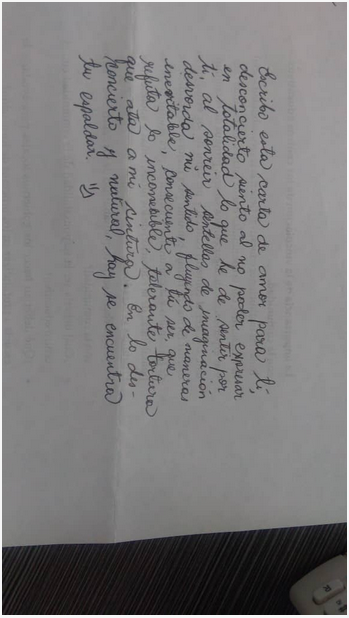 Escribo esta carta de amor para ti,
desconcierto siento al no poder expresar
en totalidad lo que he de sentir por
ti, al sonreir sentellas de imaginación
desborda mi sentido, fluyendo de maneras
inevitable, consecuente a tu ser, que
refuta lo inconcebible, tolerante tortura
que ata a mi cintura. En lo des-
concierto y natural, hoy se encuentra
tu espaldar.